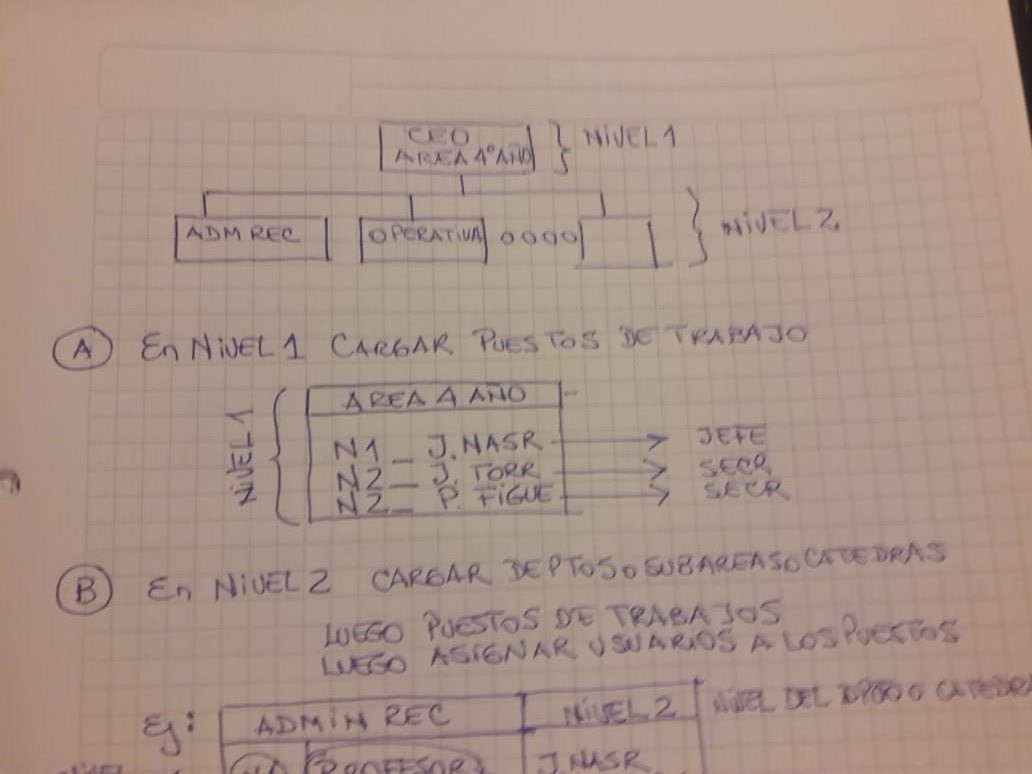 CEO
AREA 4º AÑO
NIVEL 1
ADM REC
OPERATIVA
0000
NIVEL 2
A En NIVEL 1 CARGAR PUESTOS DE TRABAJO
NIVEL 1
AREA 4 AÑO
N1_ J. NASR JEFE
N2_ J. TORR SECR
N2_ P. FIGUE SECR
B En NIVEL 2 CARGAR DEPTOS o SUBAREAS o CATEDRAS
LUEGO PUESTOS DE TRABAJOS
LUEGO ASIGNAR USUARIOS A LOS PUESTOS
Ej: ADMIN REC NIVEL 2 NIVEL DEL DPTO O CATEDRA
PROFESOR J. NASR